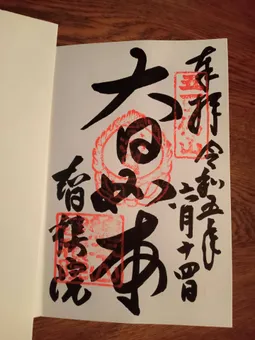 奉拝 令和五年
六月十四日
大日如来
智積院